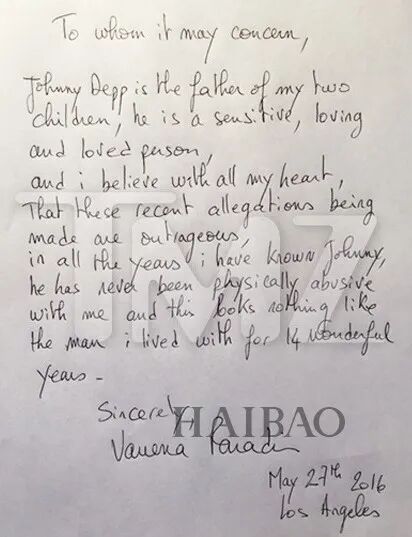 To whom it may concern,
Johnny Depp is the father of my two
children, he is a sensitive, loving
and loved person,
and i believe with all my heart,
That these recent allegations being
made are outrageous,
in all the years i have known Johnny,
he has never been physically abusive
with me and this looks nothing like
the man i lived with for 14 wonderful
years -
Sincerely
HAIBAO
Vanessa Paradis
May 27th 2016
Los Angeles
TMZ